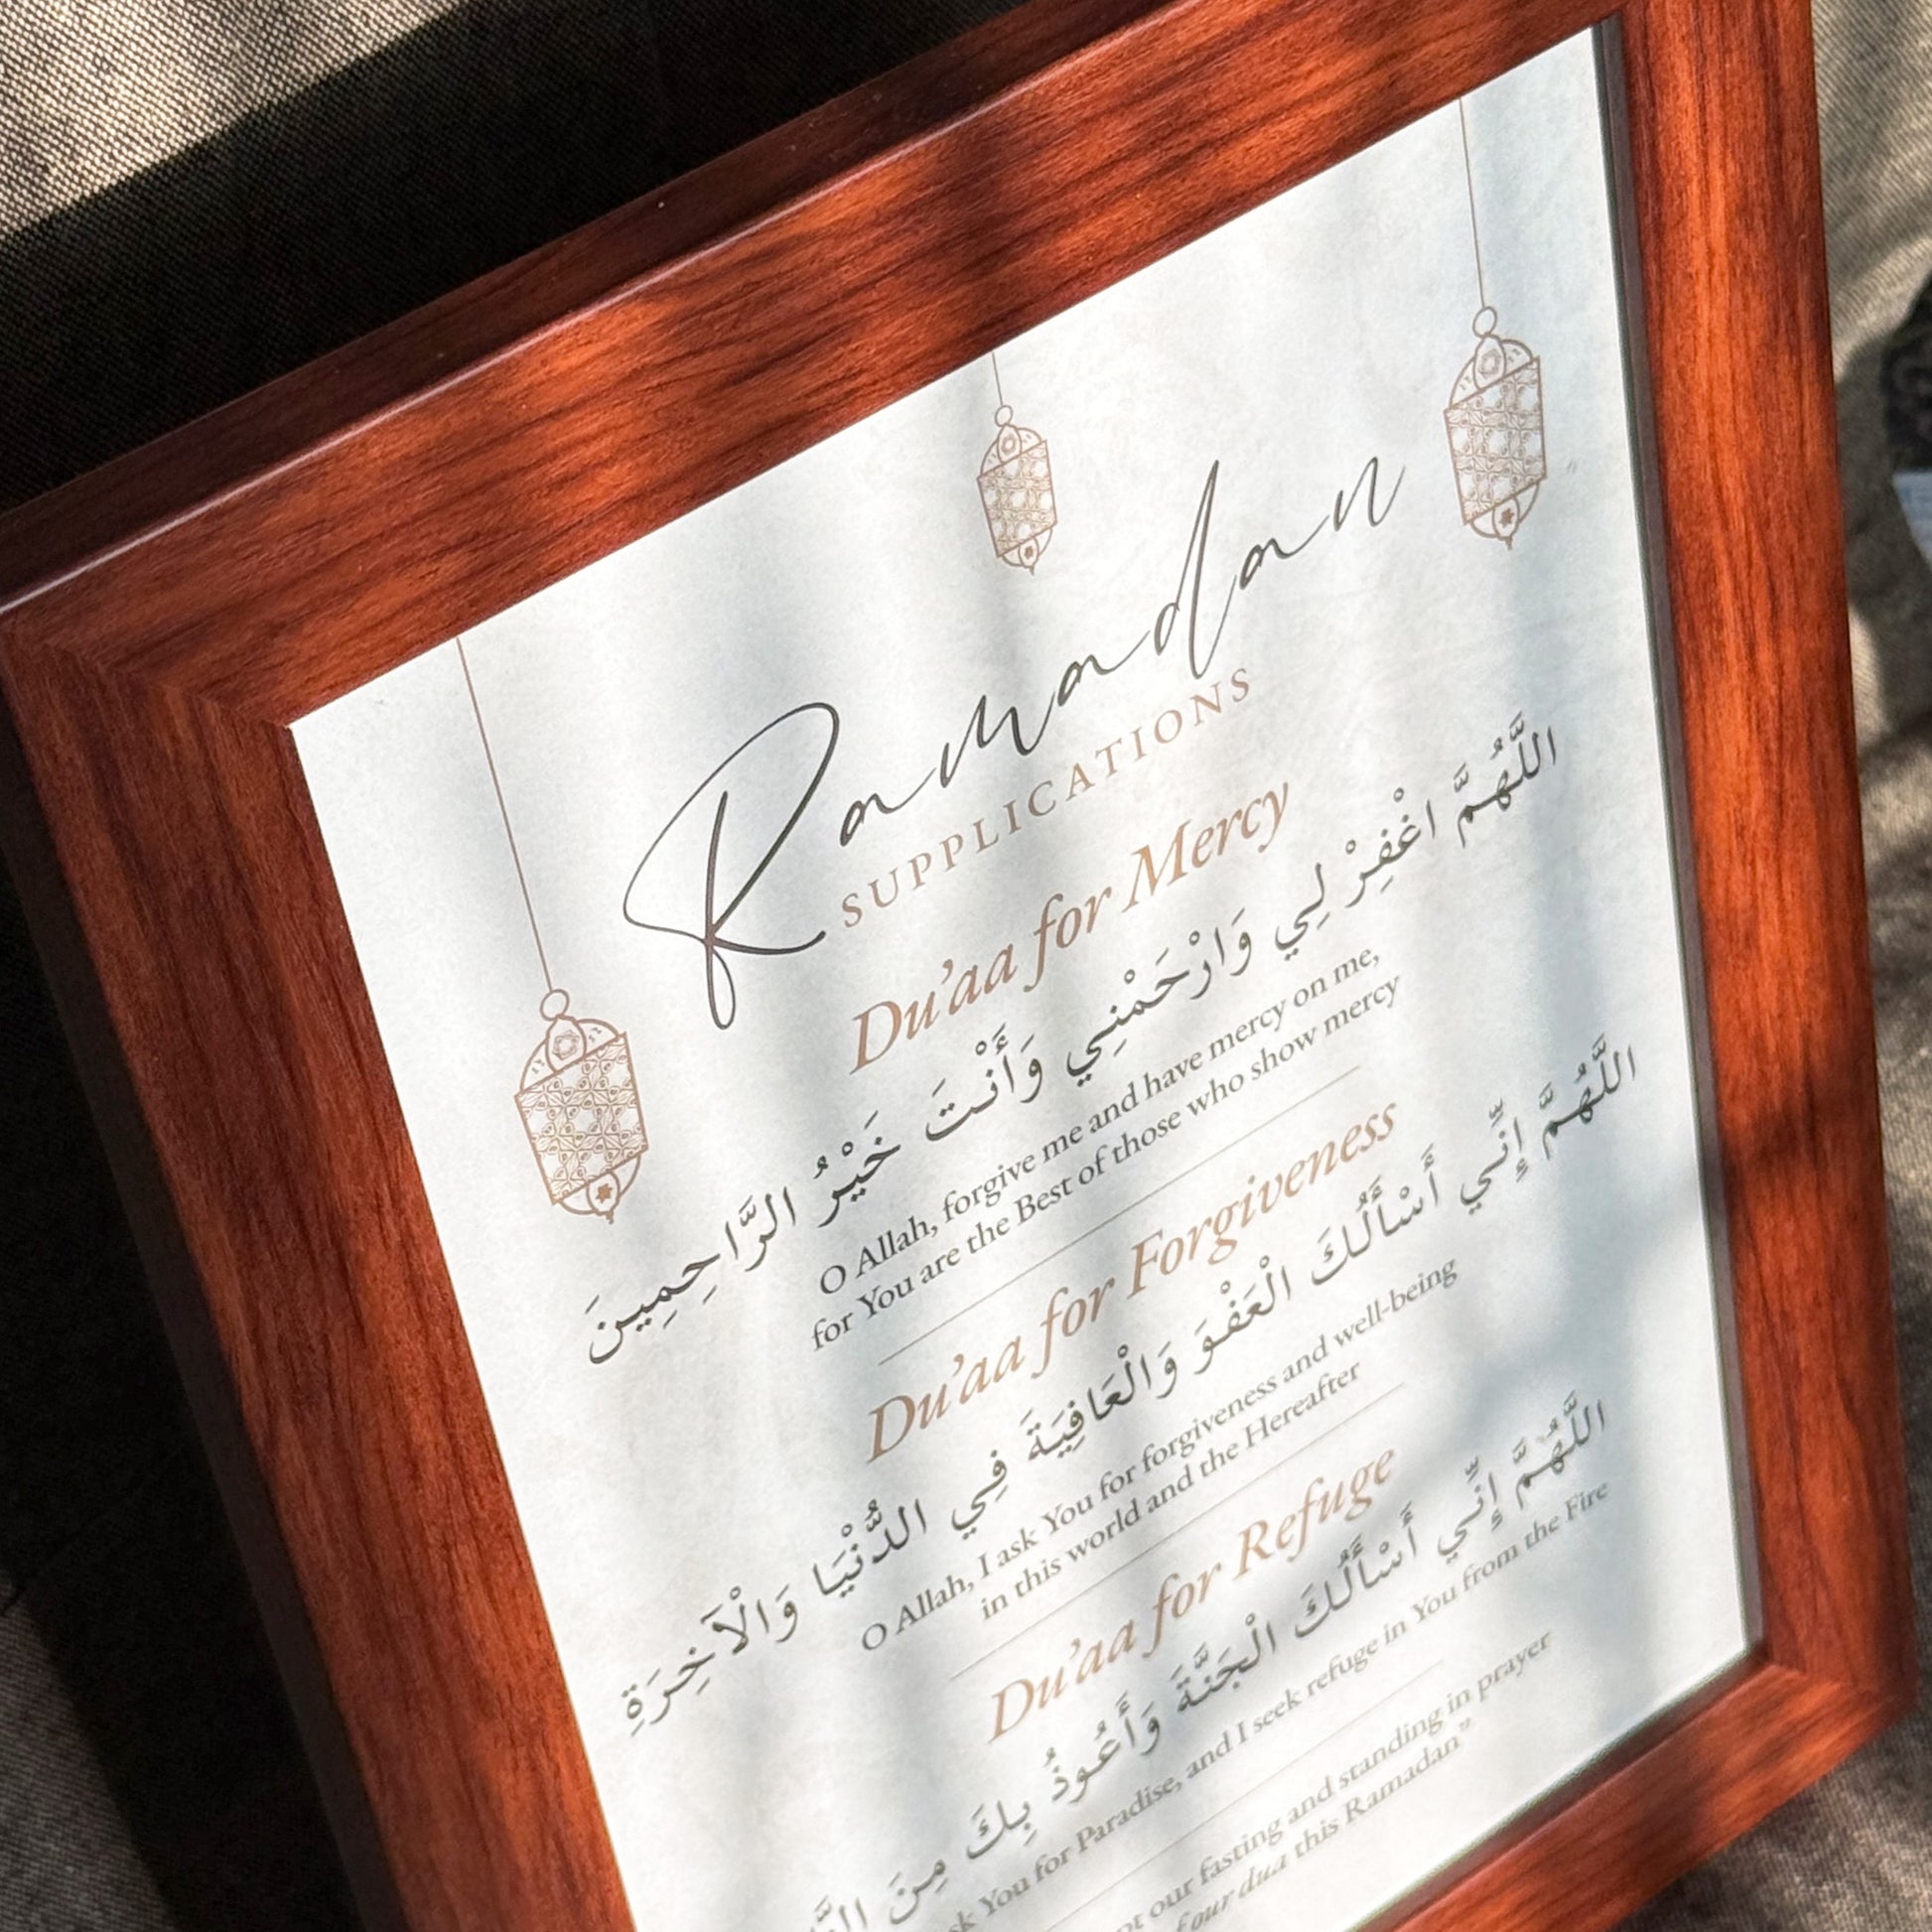 Ramadan
SUPPLICATIONS
Du'aa for Mercy
اللَّهُمَّ اغْفِرْ لِي وَارْحَمْنِي وَأَنْتَ خَيْرُ الرَّاحِمِينَ
O Allah, forgive me and have mercy on me,
for You are the Best of those who show mercy
Du'aa for Forgiveness
اللَّهُمَّ إِنِّي أَسْأَلُكَ الْعَفْوَ وَالْعَافِيَةَ فِي الدُّنْيَا وَالْآخِرَةِ
O Allah, I ask You for forgiveness and well-being
in this world and the Hereafter
Du'aa for Refuge
اللَّهُمَّ إِنِّي أَسْأَلُكَ الْجَنَّةَ وَأَعُوذُ بِكَ مِنَ
You for Paradise, and I seek refuge in You from the Fire
our fasting and standing in prayer
our dua this Ramadan"